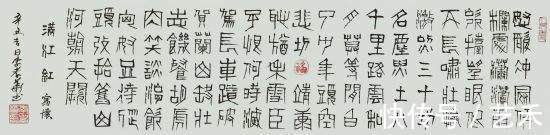 怒髮沖冠憑
欄處瀟瀟雨
歇擡望眼仰
天長嘯壯懷
激烈三十功
名塵與土八
千里路雲和
月莫等閒白
了少年頭空
悲切靖康
恥猶未雪臣
子恨何時滅
駕長車踏破
賀蘭山缺壯
志飢餐胡虜
肉笑談渴飲
匈奴血待從
頭收拾舊山
河朝天闕
滿江紅 寫懷
辛丑吉日李
快传号/艺禾